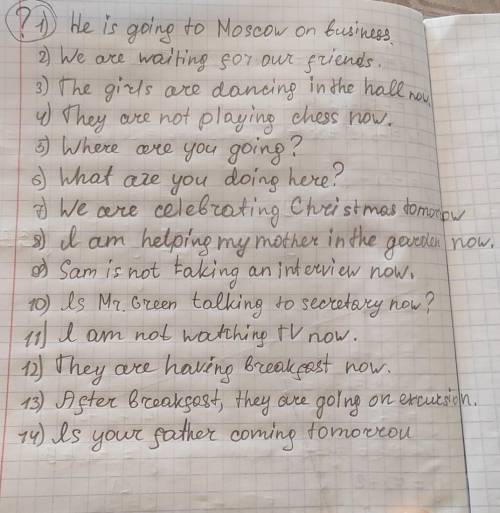 ? 1) He is going to Moscow on business.
2) We are waiting for our friends.
3) The girls are dancing in the hall now
4) They are not playing chess now.
5) Where are you going?
6) What are you doing here?
7) We are celebrating Christmas tomorrow
8) I am helping my mother in the garden now.
9) Sam is not taking an interview now.
10) Is Mr. Green talking to secretary now?
11) I am not watching TV now.
12) They are having breakfast now.
13) After breakfast, they are going on excursion.
14) Is your father coming tomorrou